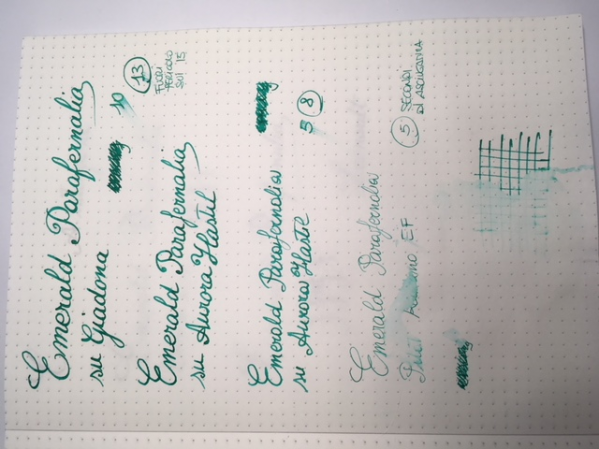 Emerald Parafernalia
su Giadona
10
13
FUORI
PERICOLO
SUI 15
Emerald Parafernalia
su Aurora Hastil
Emerald Parafernalia
su Aurora Haste
5 8
Emerald Parafernalia
EF
5 SECONDI
DI ASCIUGATURA